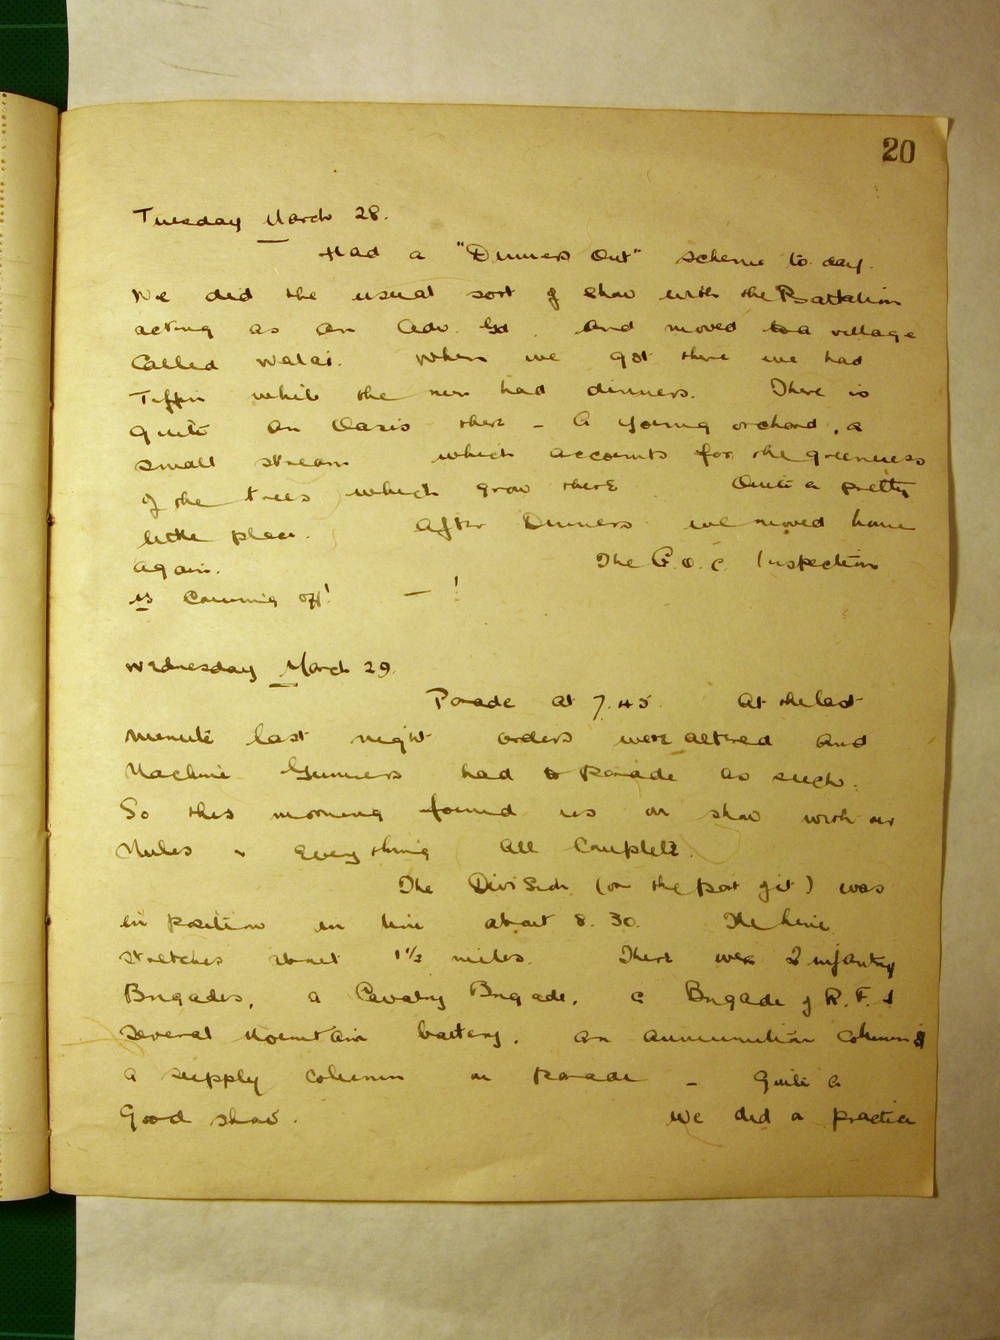 20
Tuesday March 28.
Had a "Dinners Out" scheme to day.
We did the usual sort of show with the Battalion
acting as an Adv. Gd. and moved to a village
called Walai. When we got there we had
Tiffin while the men had dinners. There is
quite an Oasis there - A young orchard, a
small stream which accounts for the greenness
of the trees which grow there. Quite a pretty
little place. After Dinners we moved home
again. The G.O.C. Inspection
is coming off! - !
Wednesday March 29.
Parade at 7.45. At the last
minute last night orders were altered and
Machine Gunners had to parade as such.
So this morning found us on show with our
Mules & everything all complete.
The Division (or the part of it) was
in position in line about 8.30. The line
stretches about 1½ miles. There were 2 infantry
Brigades, a Cavalry Brigade, a Brigade of R.F.A
several Mountain battery, an ammunition column &
a supply column on parade - Quite a
Good show. We did a practice